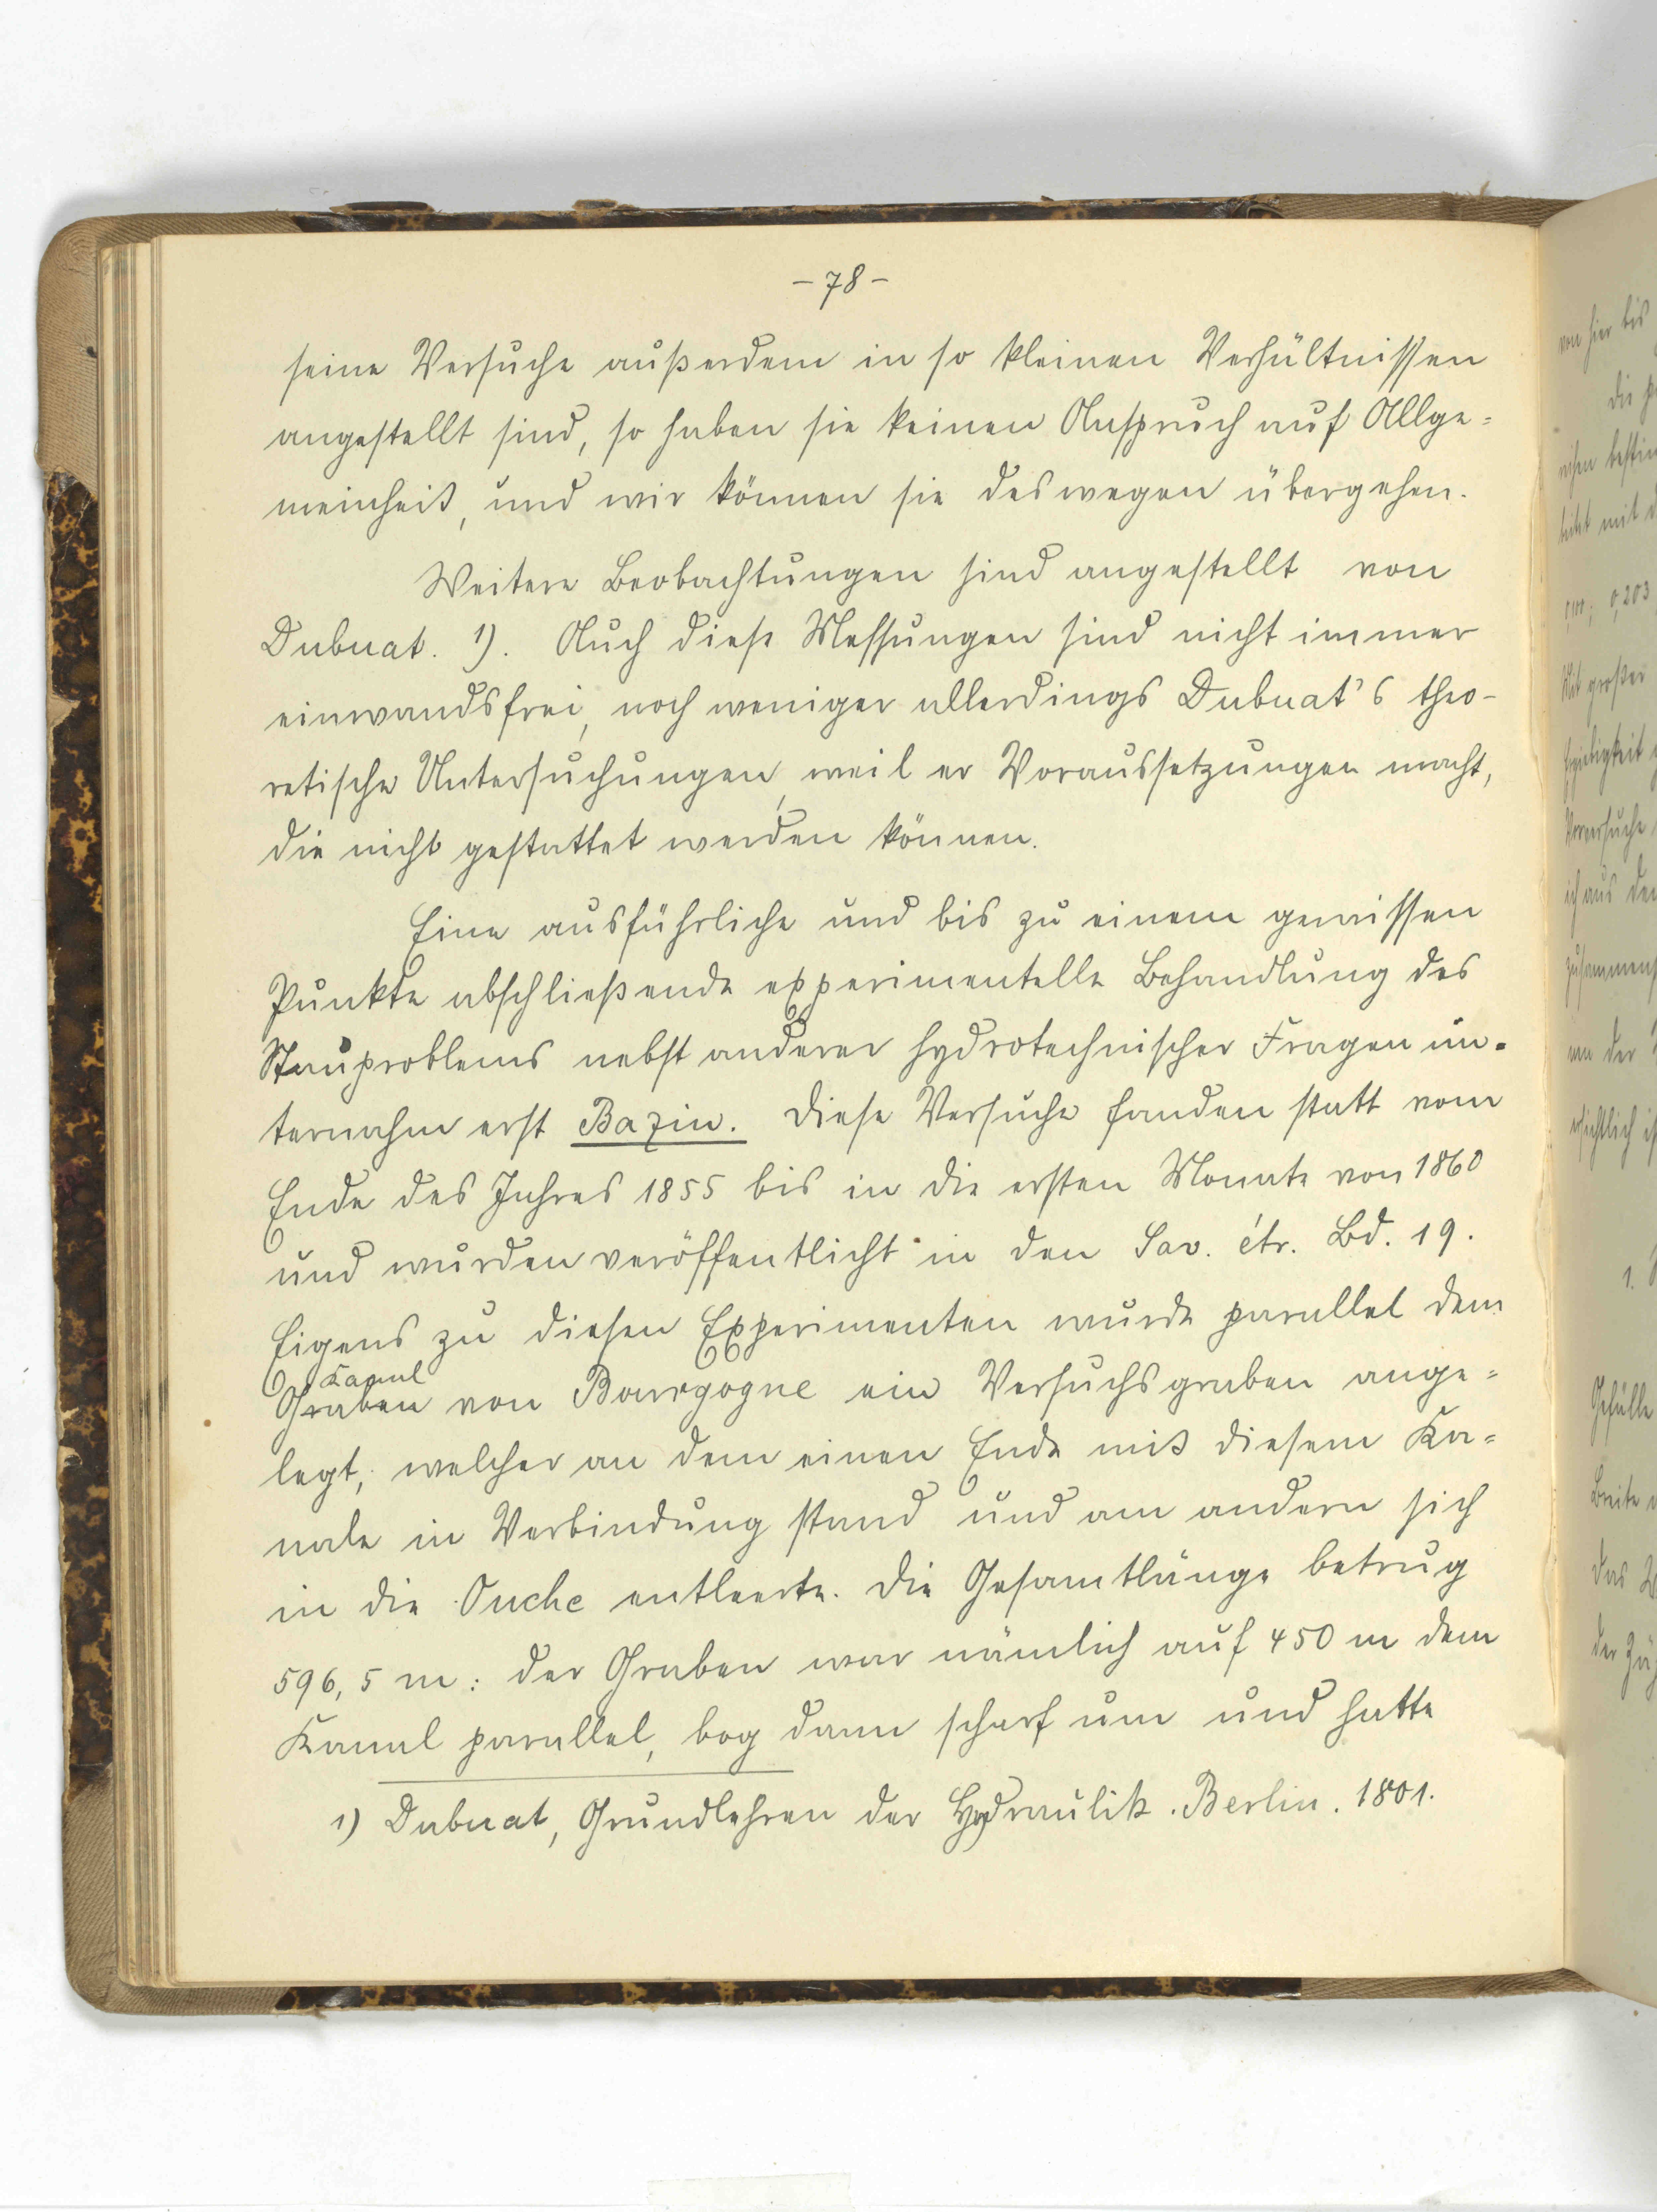 – 78 –
seine Versuche außerdem in so kleinen Verhältnissen
angestellt sind, so haben sie keinen Anspruch auf Allge=
meinheit, und wir können sie deswegen übergehen.
Weitere Beobachtungen sind angestellt von
Dubuat. 1). Auch diese Messungen sind nicht immer
einwandsfrei, noch weniger allerdings Dubuat's theo-
retische Untersuchungen, weil er Voraussetzungen macht,
die nicht gestattet werden können.
Eine ausführliche und bis zu einem gewissen
Punkte abschließende experimentelle Behandlung des
Stauproblems nebst anderer hydrotechnischer Fragen un=
ternahm erst Bazin. Diese Versuche fanden statt vom
Ende des Jahres 1855 bis in die ersten Monate von 1860
und wurden veröffentlicht in den Sav. étr. Bd. 19.
Eigens zu diesen Experimenten wurde parallel dem
Kanal
Graben von Bourgogne ein Versuchsgraben ange=
legt, welcher an dem einen Ende mit diesem Ka=
nale in Verbindung stand und am andern sich
in die Ouche entleerte. Die Gesamtlänge betrug
596,5 m: der Graben war nämlich auf 450 m dem
Kanal parallel, bog dann scharf um und hatte
1) Dubuat, Grundlehren der Hydraulik. Berlin. 1801.
von hier bis
die
mit
0,203
Mit großer
ich aus den
der
1.
Gefälle
Breite
das
der